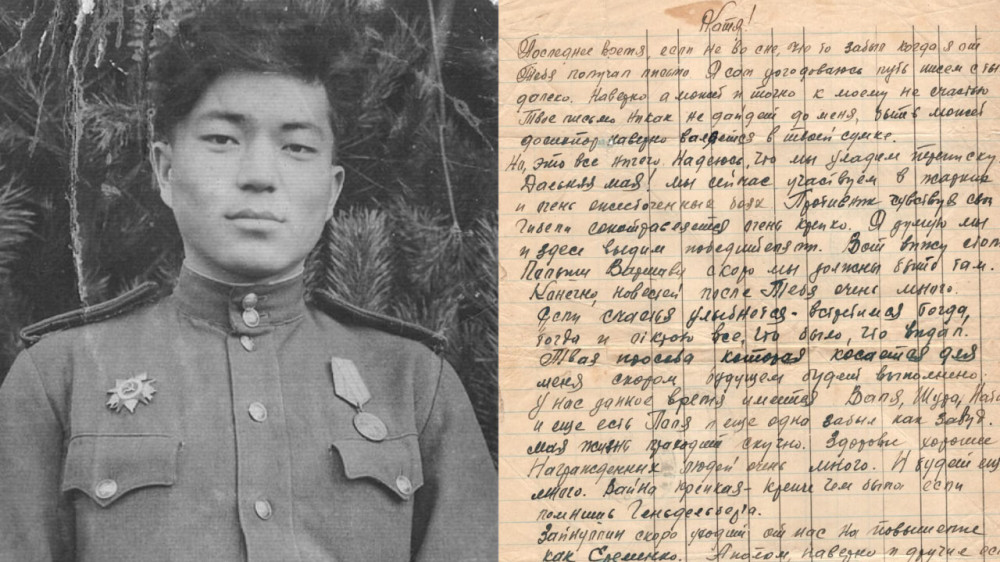 Катя!
Последнее время, если не во сне, что то забыл когда я от
Тебя получал письмо. Я сам догодоваюсь путь писем с ты
далеко. Наверно а может и точно к моему не счастью
Твое письмо никак не дайдет до меня, быть может
наверно валяется в твоей сумке.
Но, это все ничего. Надеюсь, что мы уладим переписку.
мая! мы сейчас участвуем в жарких
и очень ожесточенных боях. Противник чувствуя сво
Гибели сопотдавляется очень крепко. Я думаю мы
и здесь выдим победителями. Вот вижу стол
Папули Варшава скоро мы должны быть там.
Конечно, новостей после Тебя очень много.
Если счастья улыбнется - встретимся Тогда,
тогда и открою все, что было, что видал.
Твая просьба которая косается для
меня скором будущем будет выполнено.
У нас данное время имеется Валя, Шура, Наба
и еще есть Папя и еще одна забыл как Завут.
мая жизнь праходит скучно. Здоровье хорошее
Награжденных людей очень много. И будет ещ
много. Вайна крепкая - крепче чем была если
помнишь Гендельберга.
Зайнуллин скоро уходит от нас на повышение
как Еременко. А потом, наверно и другие ест